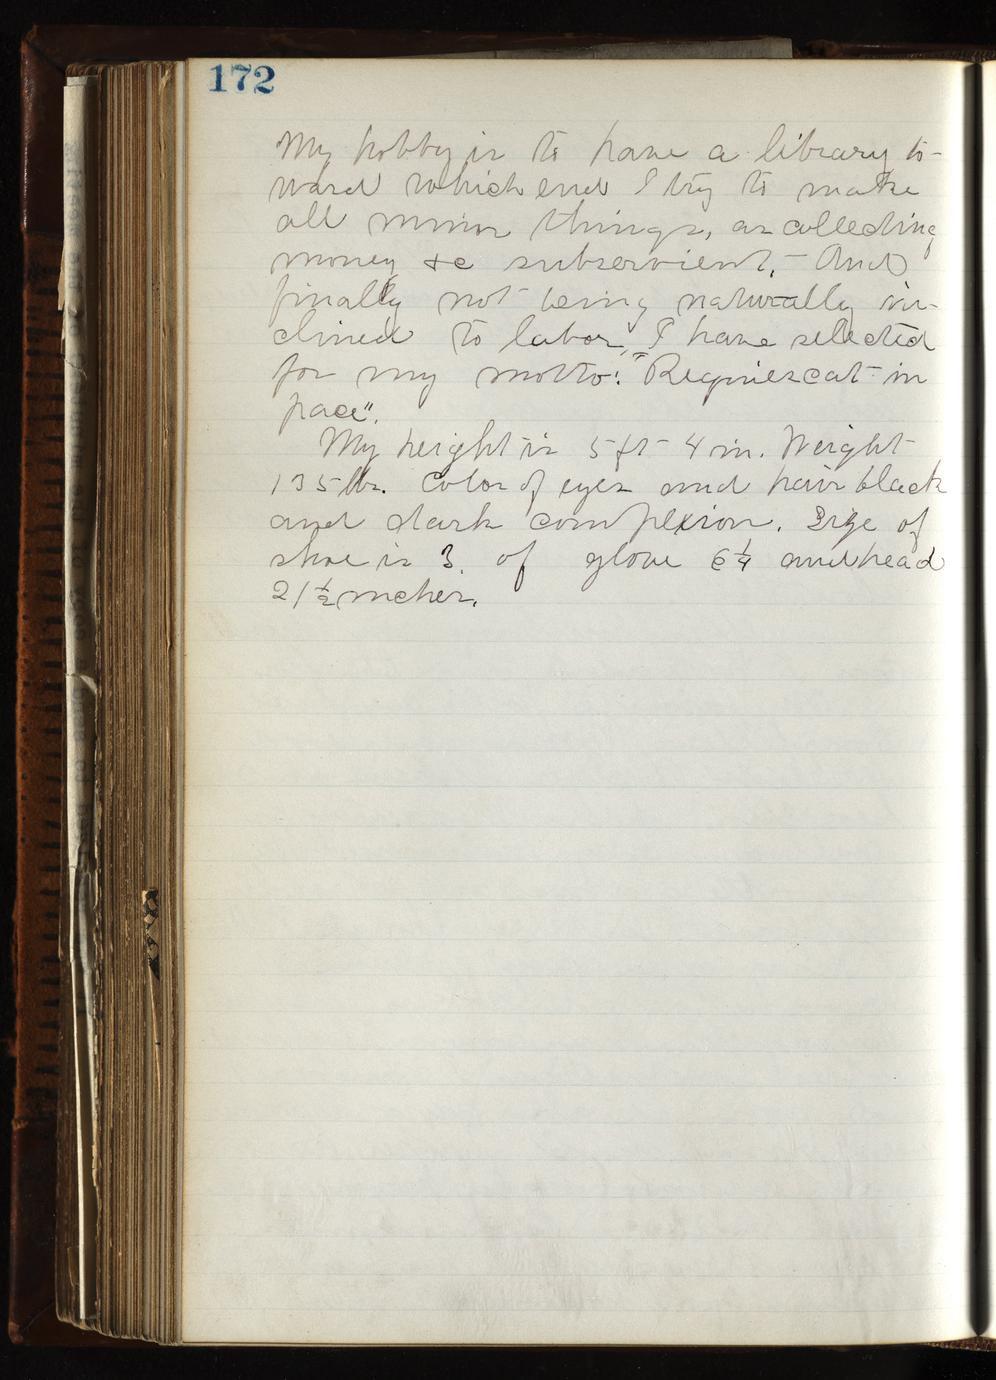 172
My hobby is to have a library to-
ward which end I try to make
all minor things, as collecting
money &c subservient, - And
finally not being naturally in-
clined to labor, I have selected
for my motto: "Requiescat in
pace".
My height is 5 ft 4 in. Weight
135 lbs. Color of eyes and hair black
and dark complexion. Size of
shoe is 3. of glove 6 1/4 and head
21 1/2 inches.